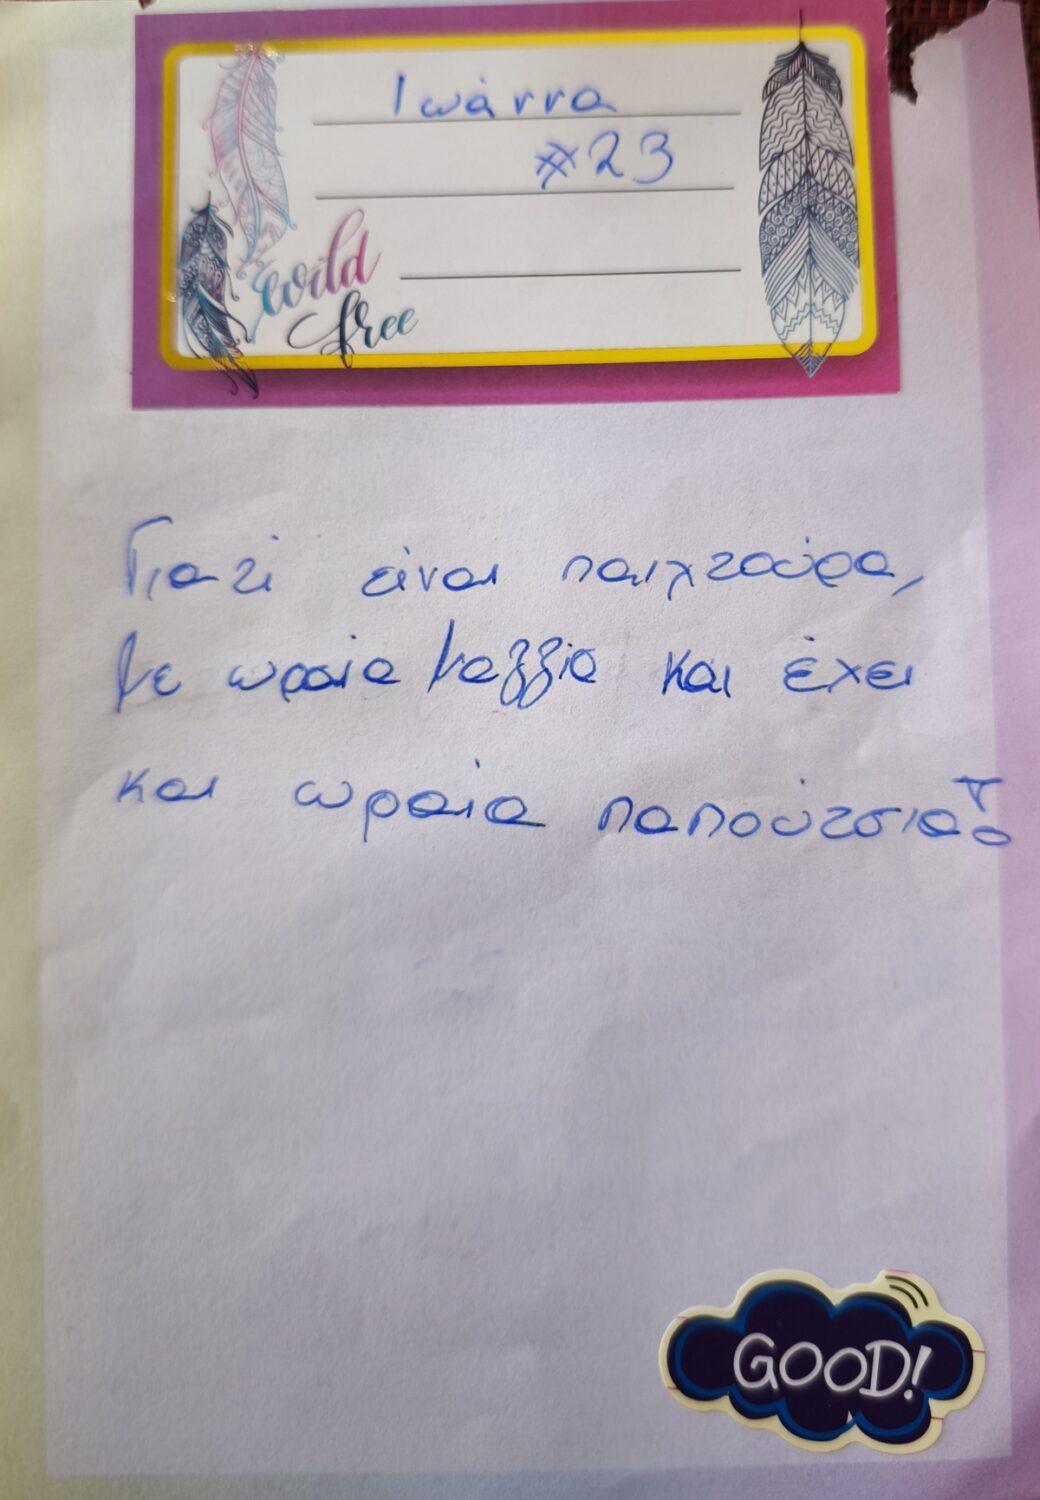 Ιωάννα
#23
wild
free
Γιατί είναι παιχτούρα,
με ωραία μαλλιά και έχει
και ωραία παπούτσια!
GOOD!